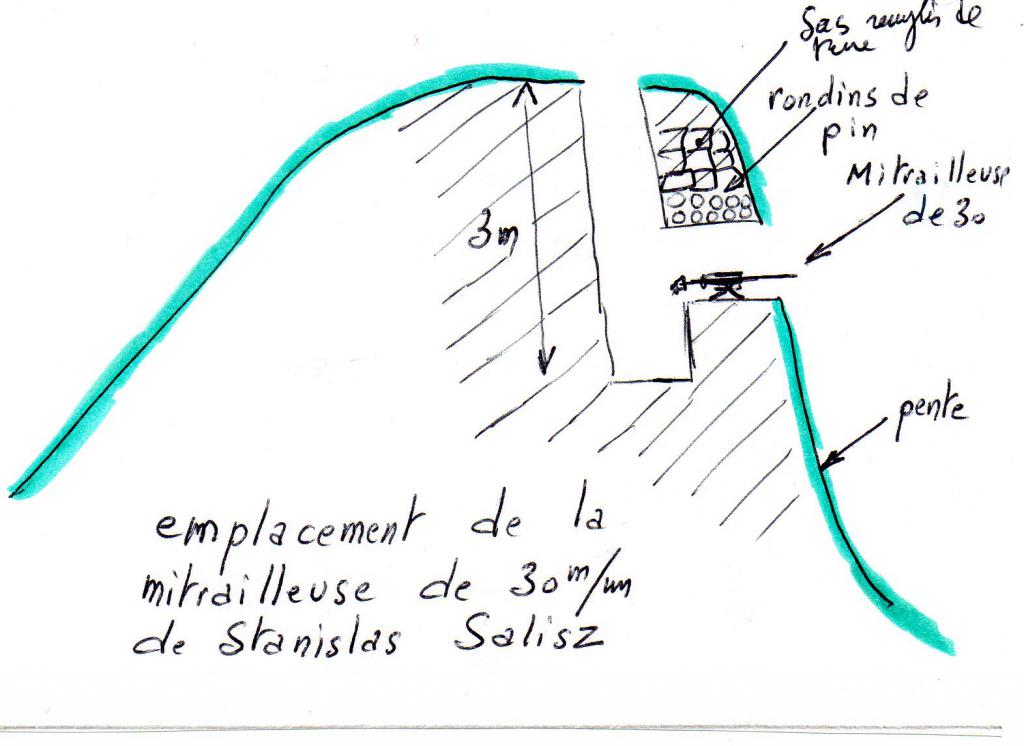 Sas remplis de
terre
rondins de
pin
Mitrailleuse
de 30
3m
pente
emplacement de la
mitrailleuse de 30 m/m
de Stanislas Salisz